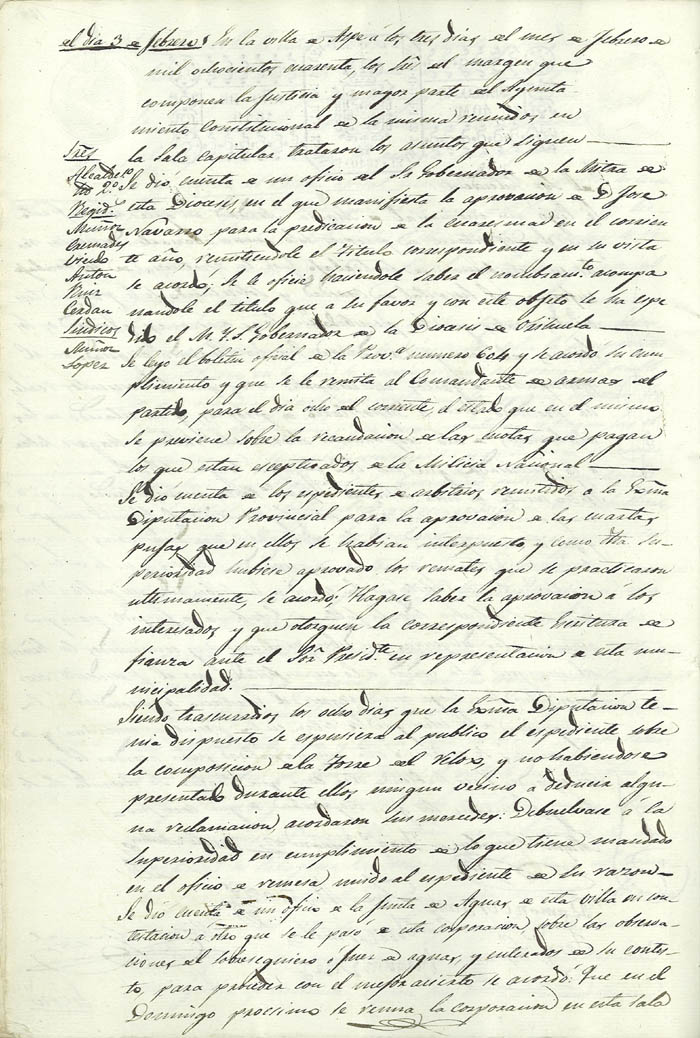 el dia 3 de febrero En la villa de Aspe á los tres dias del mes de febrero de
mil ochocientos cuarenta, los Sres del margen que
componen la Justicia y mayor parte del Ayunta
miento Constitucional de la misma reunidos en
la Sala Capitular trataron los asuntos que siguen
Sres
Alcalde
2º
Regid.s
Muñoz
Cremades
Viendo
Anton
Ruiz
Cerdan
Sindicos
Muñoz
Lopez
Se dió cuenta de un oficio del Sr Gobernador de la Mitra de
esta Diocesis, en el que manifiesta la aprovacion de D. Jose
Navarro para la predicacion de la cuaresma en el corrien
te año, remitiendole el titulo correspondiente y en su vista
se acordó, se le oficie haciendole saber el nombram.to acompa
ñandole el titulo que a su favor y con este objeto le ha espe
dido el M. Y. S. Gobernador de la Diocesis de Orihuela
Se leyo el boletin oficial de la Prov.a numero y se acordó su cum
plimiento y que se le remita al Comandante de armas del
partido, para el dia ocho del corriente, el estado que en el mismo
se previene sobre la recaudacion de las cuotas que pagan
los que estan esceptuados de la Milicia Nacional
Se dio cuenta de los espedientes de arbitrios remitidos a la Exma
Diputacion Provincial para la aprovacion de las cuartas
pujas que en ellos se habian interpuesto y como dha Su-
perioridad hubiese aprovado los remates que se practicaron
ultimamente, se acordó; Hagase saber la aprovacion á los
interesados y que otorguen la correspondiente Escritura de
fianza ante el Sor Presid.te en representacion de esta mu-
nicipalidad.
Siendo trascurridos los ocho dias que la Exma Diputacion te-
nia dispuesto se espusiera al publico el espediente sobre
la composicion de la Torre del Relox, y no habiendose
presentado durante ellos ningun vecino á deducir algu-
na reclamacion, acordaron sus mercedes: Debuelvase á la
Superioridad en cumplimiento de lo que tiene mandado
en el oficio de remesa unido al espediente de su razon
Se dió cuenta de un oficio de la Junta de Aguas de esta villa en con-
testacion á otro que se le pasó de esta corporacion sobre las observa-
ciones del sobresequiero ó fiel de aguas, y enterados de su contes-
to, para proceder con el mejor acierto se acordó: Que en el
Domingo procsimo se reuna la corporacion en esta sala